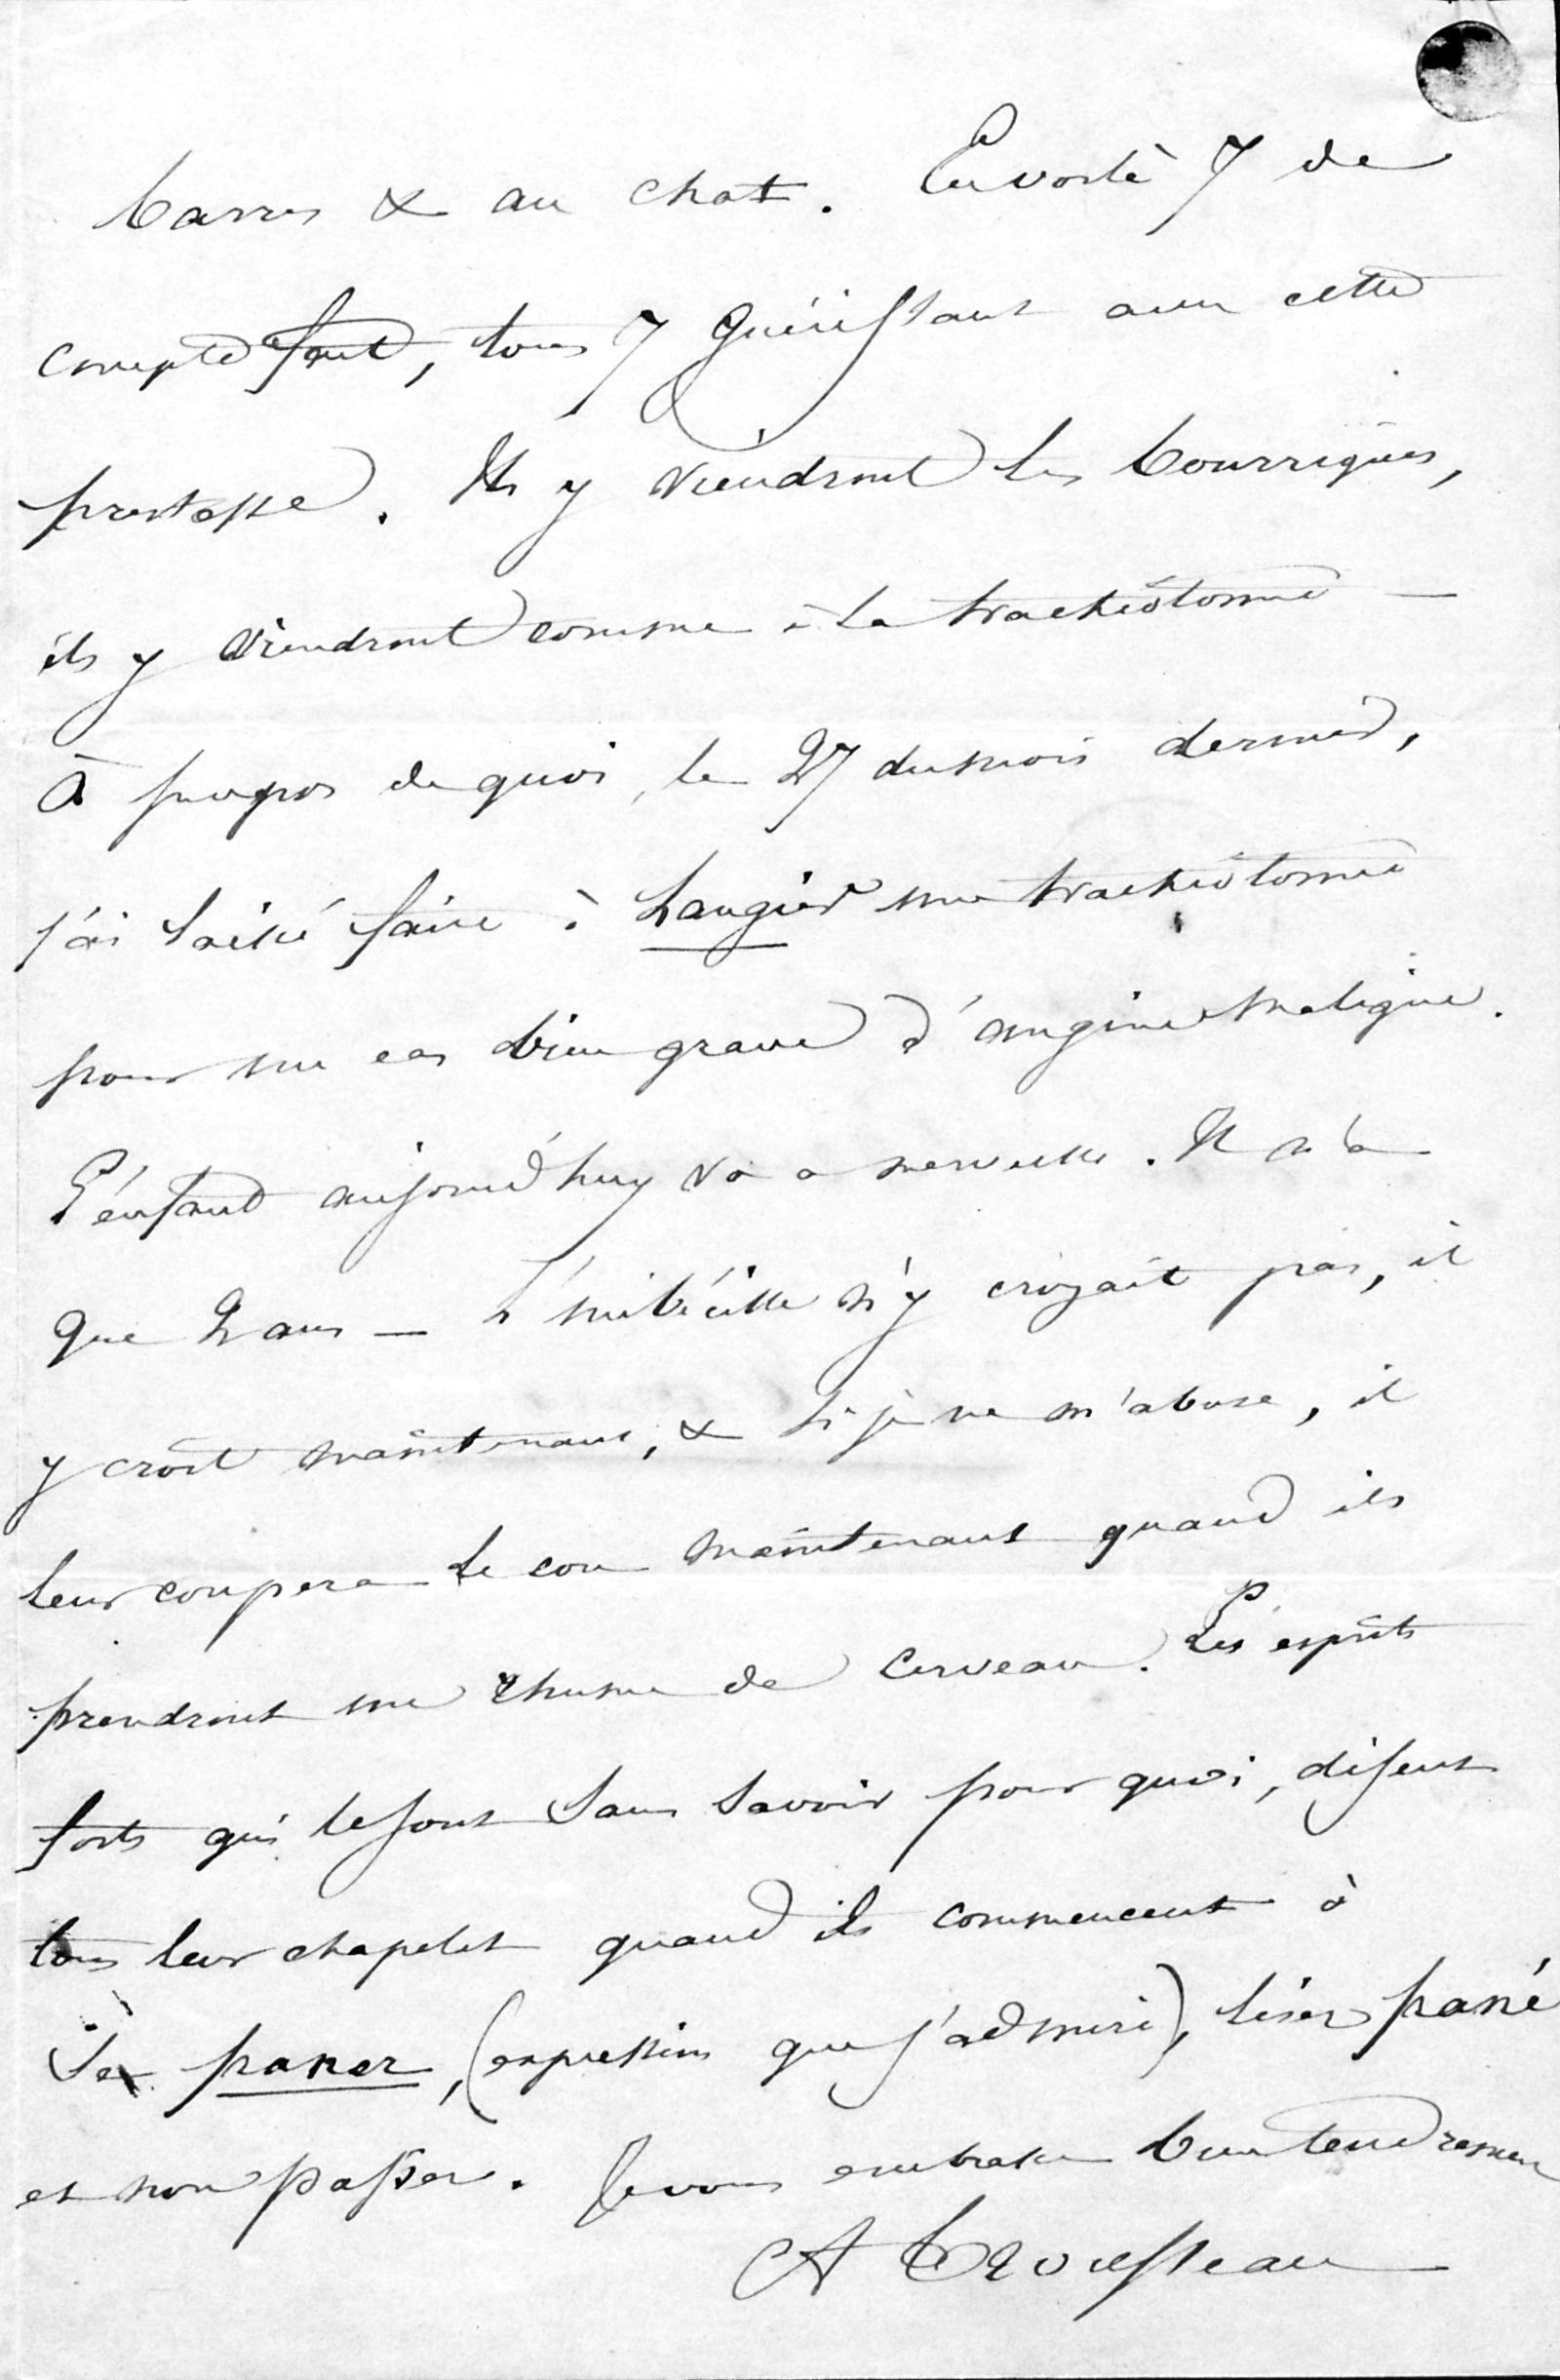 barres & au chat. En voilà 7 de
compte fait, tous 7 guérissant avec cette
prestesse. Ils y viendront les bourriques,
ils y viendront comme à la trachéotomie —
à propos de quoi, le 27 du mois dernier,
j'ai laissé faire à Laugier une trachéotomie
pour un cas bien grave d'angine maligne.
L'enfant aujourd'huy va a merveille. Il n'a
que 2 ans — L'imbécille n'y croyait pas, il
y croit maintenant, & si je ne m'abuse, il
leur coupera le cou maintenant quand ils
prendront un rhume de cerveau. Les esprits
forts qui le sont sans savoir pourquoi, disent
tous leur chapelet quand ils commencent à
se paner, (expression que j'admire), lisez pané
et non passer. Je vous embrasse bien tendremen
A Trousseau